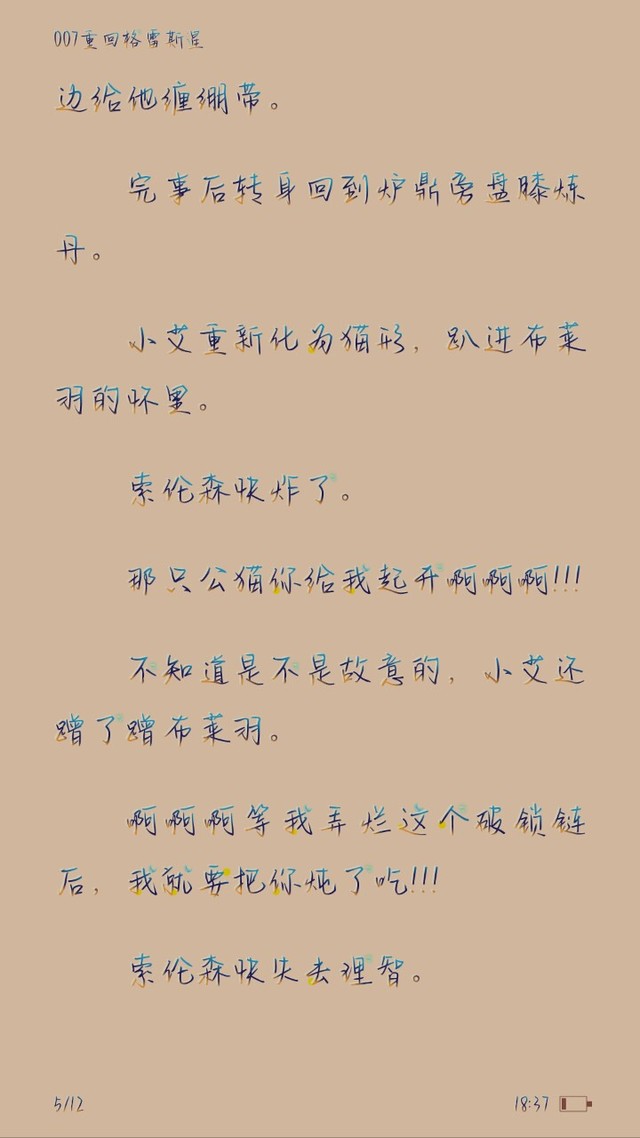 007重回格雷斯星
边给他缠绷带。
完事后转身回到炉鼎旁盘膝炼
丹。
小艾重新化为猫形，趴进布莱
羽的怀里。
索伦森快炸了。
那只公猫你给我起开啊啊啊!!!
不知道是不是故意的，小艾还
蹭了蹭布莱羽。
啊啊啊等我弄烂这个破锁链
后，我就要把你炖了吃!!!
索伦森快失去理智。
5/12
18:37